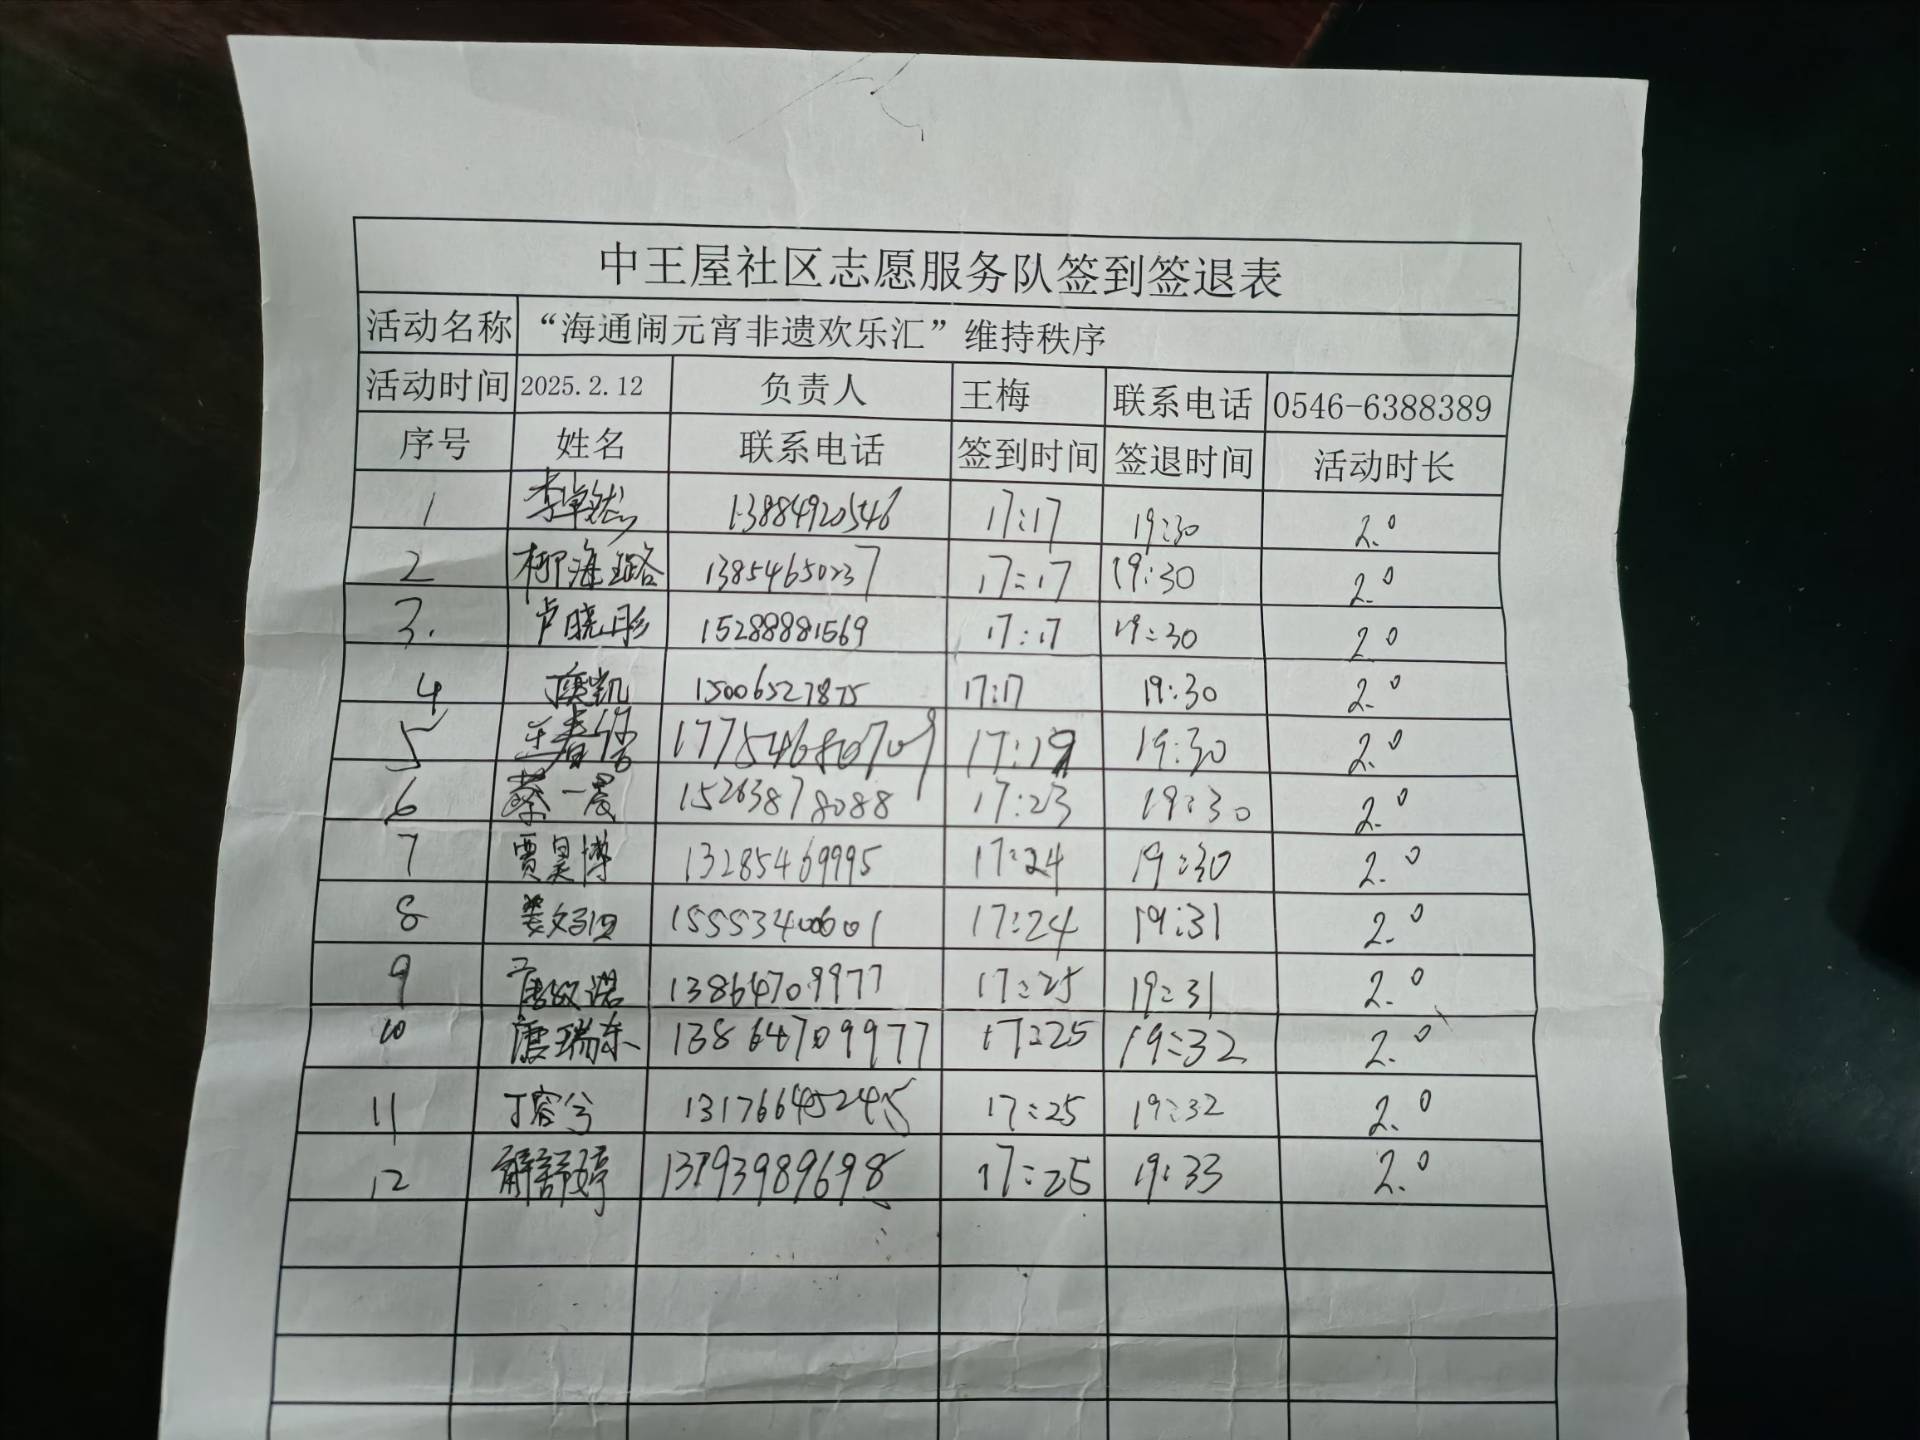 中王屋社区志愿服务队签到签退表
活动名称 “海通闹元宵非遗欢乐汇”维持秩序
活动时间 2025.2.12 负责人 王梅 联系电话 0546-6388389
序号 姓名 联系电话 签到时间 签退时间 活动时长
1 李卓然 13884920546 17:17 19:30 2.0
2 柳海璐 13854650237 17:17 19:30 2.0
3. 卢晓彤 15288881569 17:17 19:30 2.0
4 凯 15006527875 17:17 19:30 2.0
5 17754680709 17:19 19:30 2.0
6 蔡一晨 15263878088 17:23 19:30 2.0
7 贾昊博 13285469995 17:24 19:30 2.0
8 姜 15553400601 17:24 19:31 2.0
9 13864709977 17:25 19:31 2.0
10 唐瑞东 13864709977 17:25 19:32 2.0
11 丁容兮 17:25 19:32 2.0
12 解舒婷 13793989698 17:25 19:33 2.0